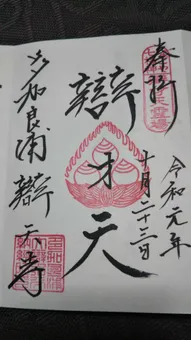 奉拝
令和元年
十月二十三日
辯才天
多和良浦辯天寿